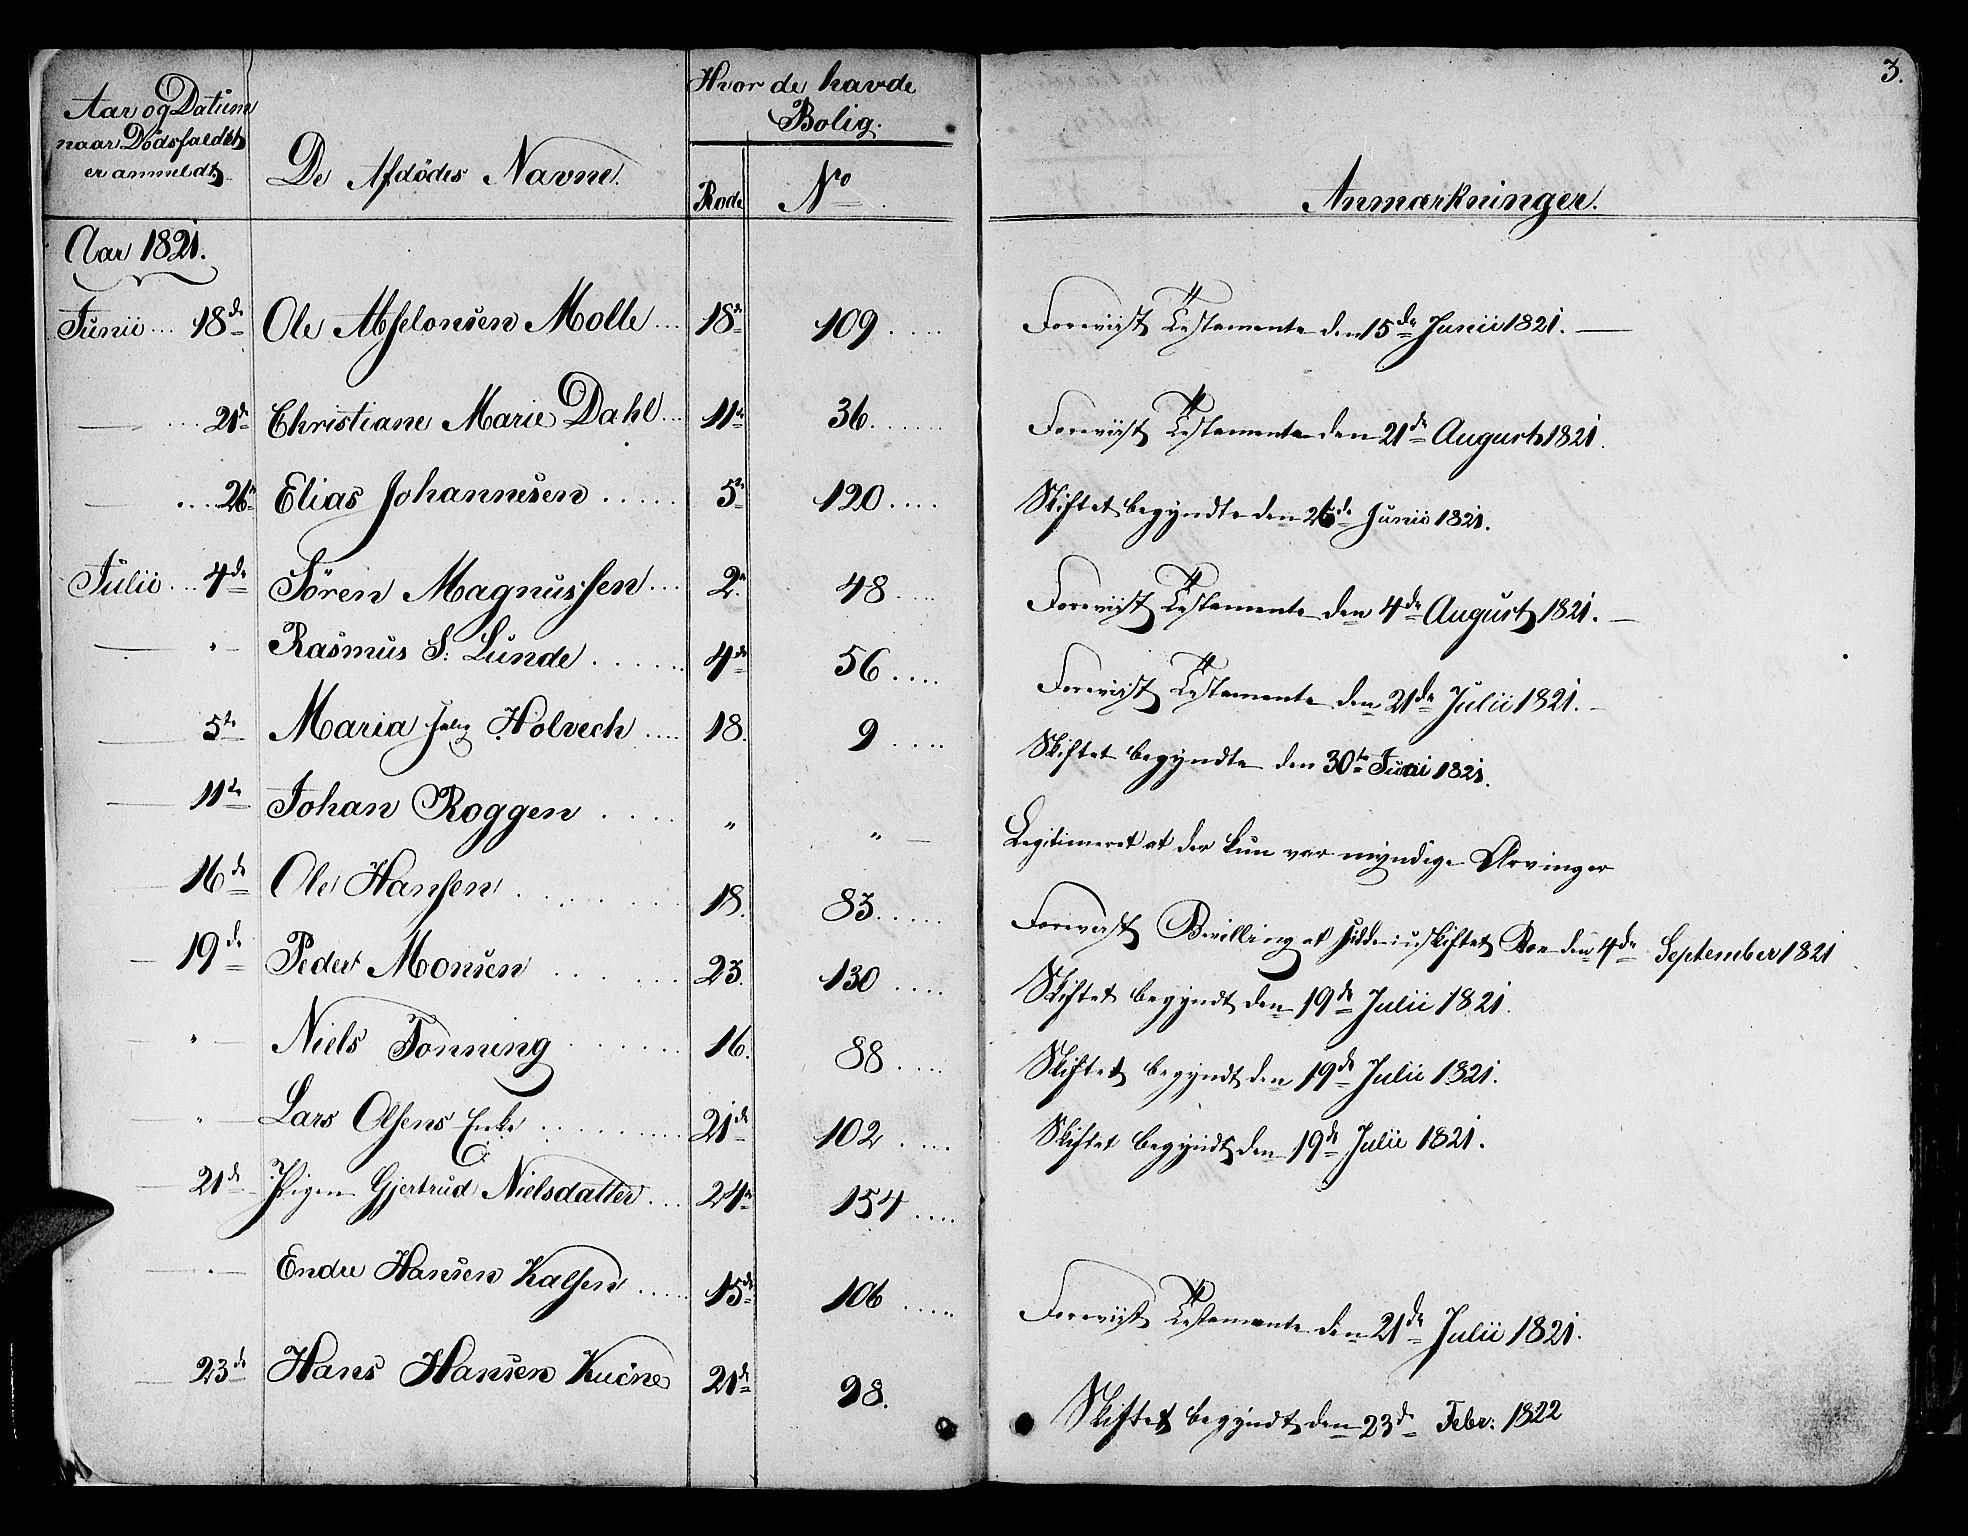 3.
Aar og Datum
naar Dödsfaldet
er anmeldt.
De Afdödes Navne.
Hvor de havde
Bolig.
Rode
No
Anmærkninger.
Aar 1821.
Junii 18de Ole Abselonsen Molle 18de 109 Foreviist Testamente den 15de Junii 1821.
21de Christiane Marie Dahl 11te 36 Foreviist Testamente den 21de August 1821.
26de Elias Johannesen 5te 120 Skiftet begyndte den 26de Junii 1821.
Julii 4de Sören Magnussen 2den 48 Foreviist Testamente den 4de August 1821.
" Rasmus S: Lunde 4de 56 Foreviist Testamente den 21de Julii 1821.
5te Maria Holvech 18. 9 Skiftet begyndte den 30te Juni 1821.
11te Johan Roggen " " Legitimeret at der kun var myndige Arvinger
16de Ole Hansen 18. 83 Foreviist Bevilling at sidde i uskiftet Boe den 4de September 1821
19de Peder Monsen 23. 130 Skiftet begyndt den 19de Julii 1821.
" Niels Tonning 16. 88 Skiftet begyndt den 19de Julii 1821.
" Lars Olsens Enke 21de 102 Skiftet begyndt den 19de Julii 1821.
21de Pigen Gjertrud Nielsdatter 24de 154
" Endre Hansen Kalsen 15de 106 Foreviist Testamente den 21de Julii 1821.
23de Hans Hansen 21de 98. Skiftet begyndt den 23de Febr: 1822